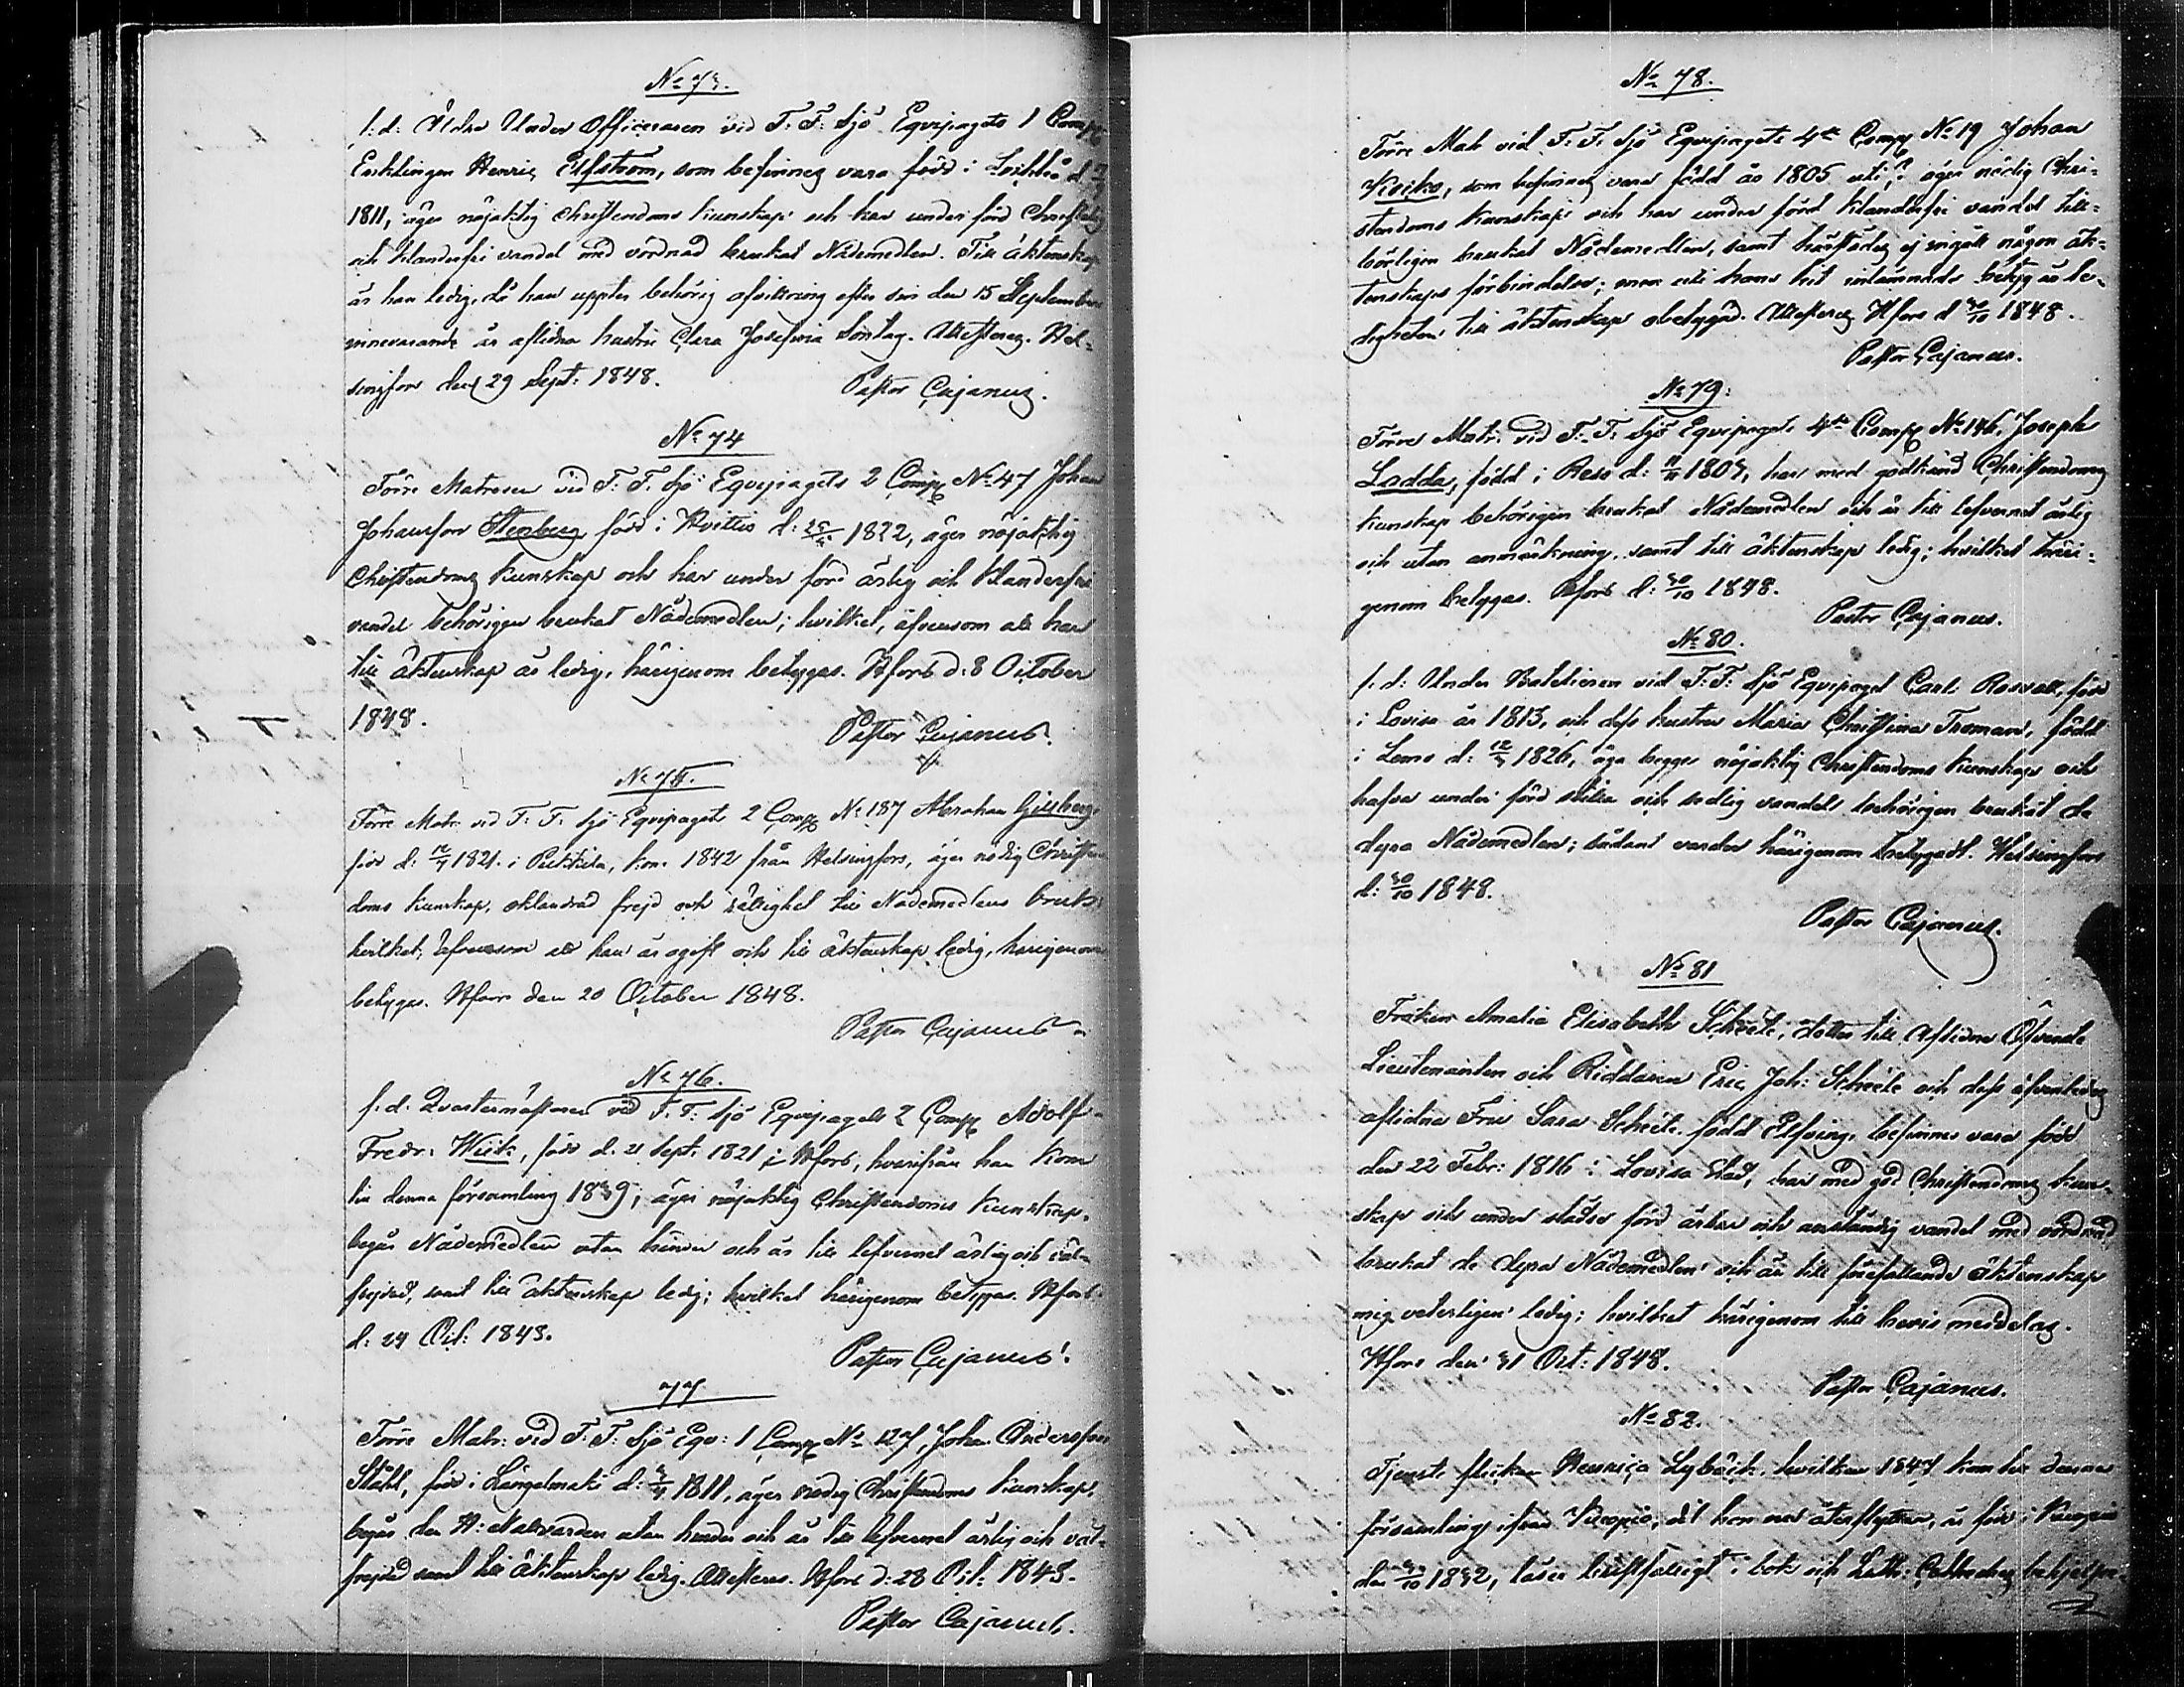 No 73.
f: d: Äldre Under Officeraren vid F. F. Sjö Equipagets 1 Comp
Enklingen Henric Elfström, som befinnes vara född i d
1811, äger nöjaktig Christendoms kunskap och har under förd Christelig
och klanderfri vandel med vördnad brukat Nådemedlen. Till äktenskap
är han ledig, då han uppter behörig afvittring efter sin den 15 September
innevarande år aflidna hustru Clara Josefina Sontag. Attesteras. Hel-
singfors den 29 Sept: 1848.
Pastor Cajanus.
No 74
Förre Matrosen vid F. F. Sjö Equipagets 2 Comp No 47 Johan
Johansson Stenberg född i Hvittis d: 25/ 1822, äger nöjaktig
Christendoms kunskap och har under förd ärlig och klanderfri
vandel behörigen brukat Nådemedlen; hvilket, äfvensom att han
till äktenskap är ledig, härigenom betygas. Hfors d: 8 October
1848.
Pastor Cajanus.
No 75.
Förre Matr. vid F. F. Sjö Equipagets 2 Comp No 187 Abraham
född d: 12/ 1821 i Pukkila, kom 1842 från Helsingfors, äger nödig Christen
doms kunskap, oklandrad frejd och rättighet till Nådemedlens bruk;
hvilket, äfvensom att han är ogift och till äktenskap ledig, härigenom
betygas. Hfors den 20 October 1848.
Pastor Cajanus
No 76.
f. d. Qvartermästaren vid F. F. Sjö Equipagets 2 Comp Adolf
Fredr: Wiik, född d. 21 Sept. 1821 i Hfors, hvarifrån han kom
till denna församling 1839; äger nöjaktig Christendoms kunskap,
begår Nådemedlen utan hinder och är till lefvernet ärlig och väl-
frejdad, samt till äktenskap ledig; hvilket härigenom betygas. Hfors
d: 24 Oct: 1848.
Pastor Cajanus.
77
Förre Matr: vid F. F. Sjö Eqv: 1 Comp No 127, Johan Andersson
Ståhl, född i Längelmäki d: 1811, äger nödig Christendoms kunskap,
begår den H: Nattvarden utan hinder och är till lefvernet ärlig och väl-
frejdad samt till äktenskap ledig. Attesteras. Hfors d: 28 Oct: 1848.
Pastor Cajanus.
No 78.
Förre Matr vid F. F. Sjö Equipagets 4de Comp No 19 Johan
som befinnes vara född år 1805 uti,? äger nödig Chri-
stendoms kunskap och har under förd klanderfri vandel till-
börligen brukat Nådemedlen, samt härstädes ej ingått någon äk-
tenskaps förbindelse; men uti hans hit inlämnade betyg är le-
digheten till äktenskap obetygad. Attesteras Hfors d 30/10 1848.
Pastor Cajanus.
No 79.
Förre Matr. vid F. F. Sjö Equipagets 4de Comp No 146, Joseph
Ladda, född i Reso d: 1803, har med godkänd Christendoms
kunskap behörigen brukat Nådemedlen och är till lefvernet ärlig
och utan anmärkning, samt till äktenskap ledig; hvilket häri-
genom betygas. Hfors d: 30/10 1848.
Pastor Cajanus.
No 80.
f. d: Under vid F. F. Sjö Equipaget Carl Rosvall, född
i Lovisa år 1813, och dess hustru Maria Christina Froman, född
i Lemo d: 12/ 1826, äga begge nöjaktig Christendoms kunskap och
hafva under förd stilla och sedlig vandel behörigen brukat de
dyra Nådemedlen; sådant varder härigenom betygadt. Helsingfors
d: 30/10 1848.
Pastor Cajanus.
No 81
Fröken Amalia Elisabeth Scheele, dotter till Aflidne Öfverste
Lieutenanten och Riddaren Eric Joh: Scheele och dess äfvenledes
aflidna Fru Sara Scheele född Elfving, befinnes vara född
den 22 Febr: 1816 i Lovisa Stad, har med god Christendoms kun-
skap och under städse förd ärbar och anständig vandel med vördnad
brukat de dyra Nådemedlen och är till förefallande äktenskap
mig veterligen ledig; hvilket härigenom till bevis meddelas.
Hfors den 31 Oct: 1848.
Pastor Cajanus.
No 82.
Tjenste flickan Henrica Lybäck, hvilken 1847 kom till denna
församling ifrån Kuopio, dit hon nu återflyttar, är född i Kuopio
den /10 1832, läser i bok och Luth: Catheches